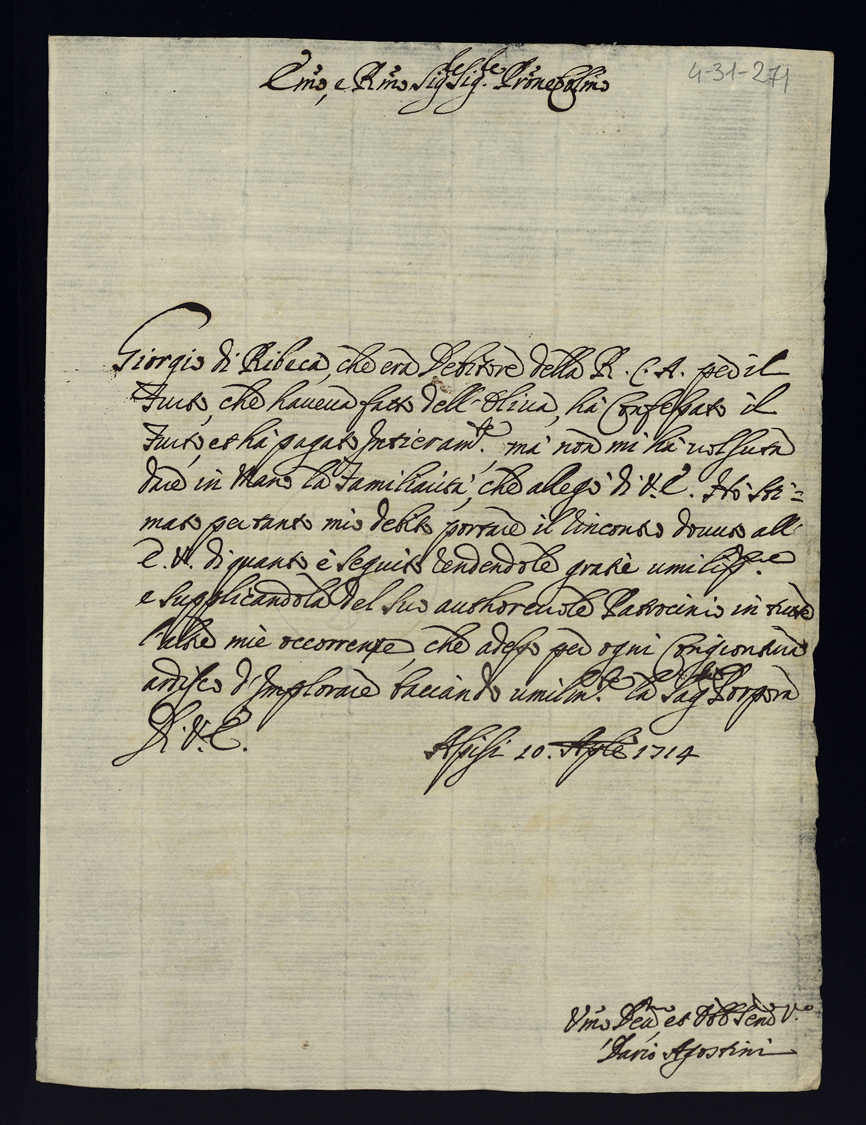 4-31-271
Em̃o, e Rm̃o Sig.re Sig.re Prone Colm̃o
Giorgio di Ribeca, che era Debitore della R. C. A. per il
Furto, che haveva fatto dell'Oliva, hà Confessato il
Furto, et hà pagato Intieram.te, mà non mi hà volsuto
dare in Mano la Familiarità, che allegò di V. E. Hò sti=
mato per tanto mio debito portare il rinconto dovuto all'
E. V. di quanto è seguito rendendole gratie umiliss.me
e supplicandola del suo authorevole Patrocinio in tutte
l'altre mie occorrenze, che adesso per ogni Congiontura
ardisco d'Implorare bacciando umilm.te la Sag. Porpora
Di V. E.
Assisi 10. Aprle 1714
Um̃o Dev.mo et Obb Serv V.o
Dario Agostini